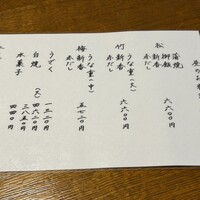 昼のお
蒲焼
御飯 六六〇〇円
松 新香
赤だし
うな重(大) 六六〇〇円
竹 新香
赤だし
うな重(中) 五七二〇円
梅 新香
赤だし
うざく 一三二〇円
白焼 (大) 四六二〇円
三八五〇円
水菓子 四四〇円